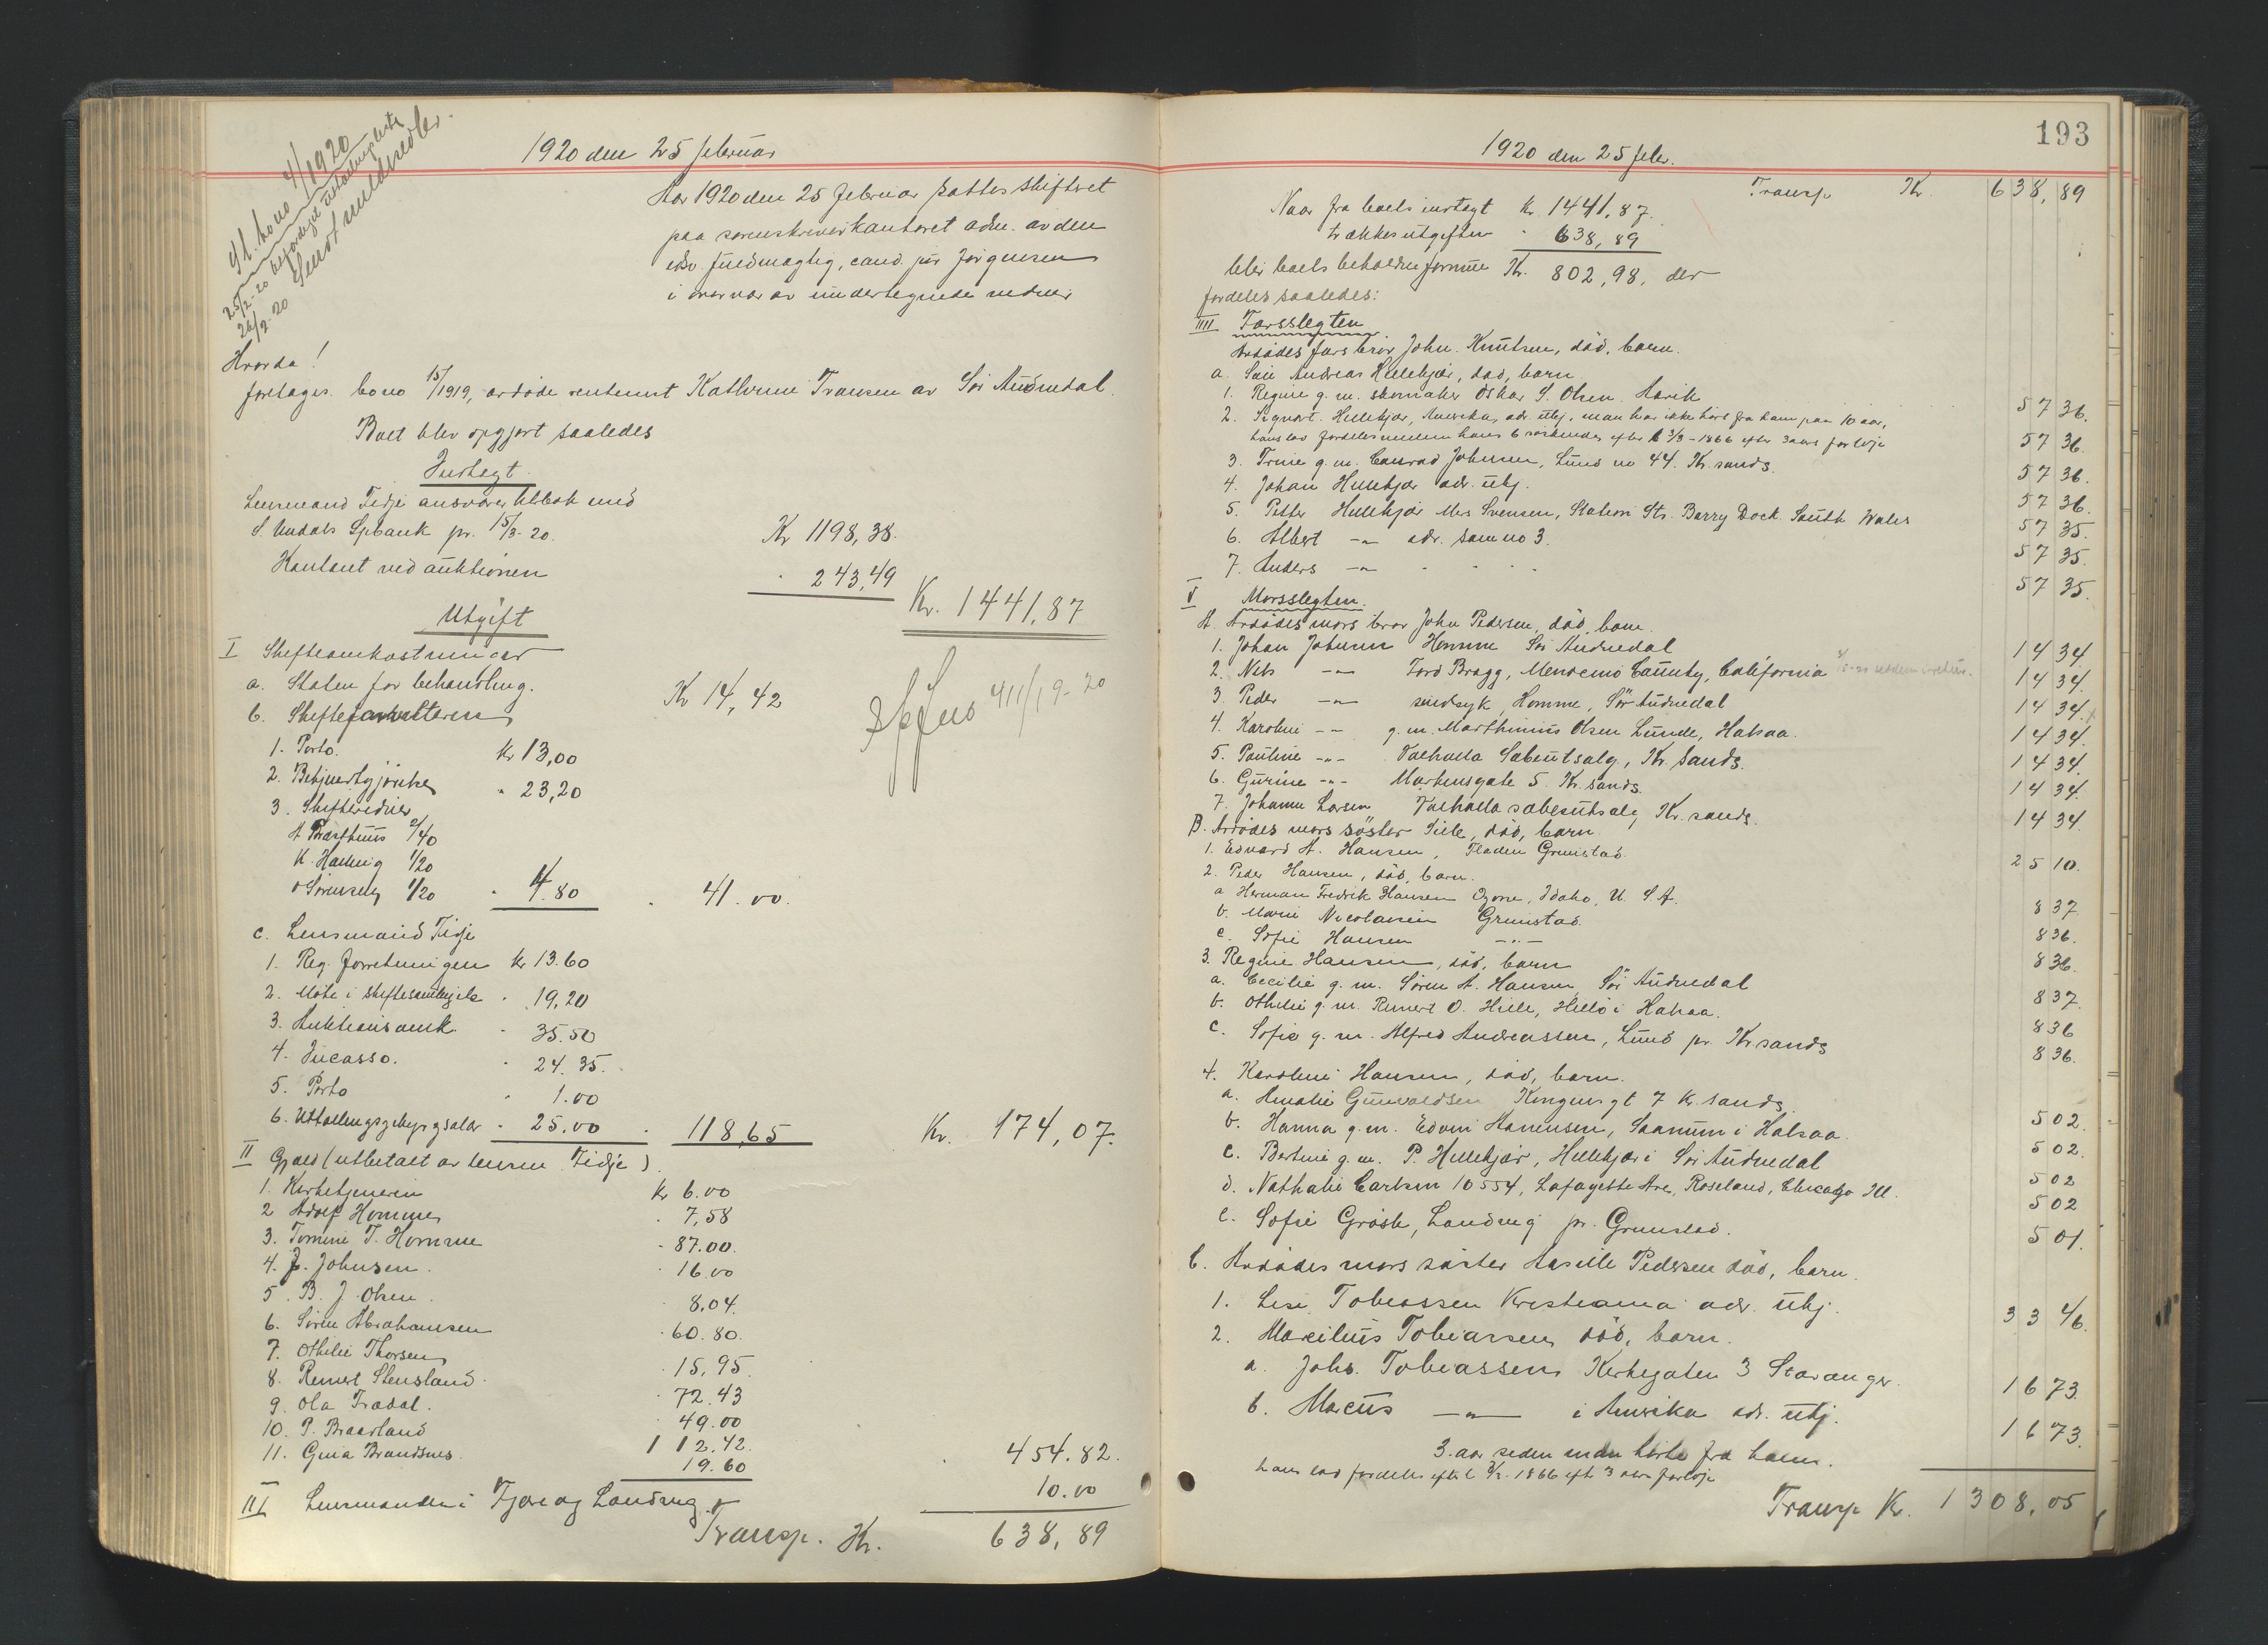 bono 4/1920
25/2-20
26/2-20
1920 den 25 februar
Aar 1920 den 25 februar sattes skifteret
paa sorenskriverkontoret adm. av den
edsv. fuldmægtig, cand. jur Jörgensen
i nærvær av undertegnede vidner
Hvorda!
foretages bo no 15/1919, avdöde rentenist Kathrine Transen av Sör Audnedal.
Boet blev opgjort saaledes
Indtægt.
Lensmand Tidje ansvarer tilbak med
S. Undals Spbank pr. 15/3-20. Kr 1198,38.
Kontant ved auktionen " 243,49 Kr. 1441,87
Utgift
I Skifteomkostninger
a. Staten for behandling. Kr 14,42
b. Skifteforvalteren
1. Porto. kr 13,00
2. Bekjendtgjörelse " 23,20
3. Skiftevidner
A Præsthuus 2/40
K. Hæstug 1/20
O Sörensen 1/20 " 4.80 " 41.00.
c. Lensmand Tidje
1. Reg. forretningen kr 13.60
2. Möte i skiftesamling " 19,20
3. Auktionsomk. " 35.50
4. Incasso. " 24.35.
5. Porto " 1.00
6. Utlodningsgebyr og salær " 25.00 " 118,65 Kr. 174,07.
II Gjæld (utbetalt av lensm. Tidje).
1. Kirketjeneren kr 6.00
2 Adolf Homme " 7,58
3. Tomine T. Homme " 87.00.
4. J. Johnsen. " 16.00
5. B. J. Olsen. " 8.04.
6. Sören Abrahamsen " 60.80.
7. Othilie Thorsen " 15,95
8. Reinert Stensland. " 72.43
9. Ola Trædal. " 49.00
10. P. Braarland 112.42.
11. Gina Brandsnes. 19.60 " 454.82.
III Lensmanden i Fjære og Landvig. 10.00
Transp. Kr. 638,89
193
1920 den 25 febr.
Transp Kr. 638,89
Naar fra boets indtægt kr. 1441,87.
trækkes utgiften " 638,89
blir boets beholdne formue Kr. 802,98, der
fordeles saaledes:
IIII Farsslegten
Avdödes fars bror John Knutsen, död, barn.
a. Sön Andreas Hellekjær, död, barn
1. Regine g. m. skomaker Oskar S. Olsen 57 36.
2. Sigvart Hellekjær, Amerika, adr. ubkj., man har ikke hört fra ham paa 10 aar,
hans lod fordeles mellem hans 6 söskende efter l 3/3-1866 efter 3 aars forlöp 57 36.
3. Trine g. m. Conrad Johnsen, Lund no 44. Kr.sands. 57 36.
4. Johan Hellekjær adr. ubkj. 57 36.
5. Petter Hellekjær Mrs Svensen, Station Str. Barry Dock South Wales 57 35.
6. Albert -"- adr. som no 3. 57 35.
7. Anders -"- " " " 57 35.
V Morsslegten.
A. Avdödes mors bror John Pedersen, död, barn.
1. Johan Johnsen Homme Sör Audnedal 14 34.
2. Nils -"- Ford Bragg, Mendocino County, California 14 34.
3. Peder -"- sindsyk, Homme, Sör Audnedal 14 34.
4. Karoline -"- g. m. Marthinius Olsen Lunde, Halsaa. 14 34.
5. Pauline -"- Valhalla Sæbeutsalg, Kr. sands. 14 34.
6. Gurine -"- Markensgate 5. Kr. sands. 14 34.
7. Johanne Larsen Valhalla sæbeutsalg Kr. sands. 14 34.
B. Avdödes mors söster Sille, död, barn.
1. Edvard A. Hansen, Fladen Grimstad. 25 10.
2. Peder Hansen, död, barn.
a Herman Fredrik Hansen Ozone, Idaho, U. S. A. 8 37.
b. Marie Nicolaisen Grimstad. 8 36.
c. Sofie Hansen -"- 8 36.
3. Regine Hansen, död, barn
a. Cecilie g. m. Sören A. Hansen, Sör Audnedal 8 37.
b. Othilie g. m. Reinert O. Hille, Hillö i Halsaa. 8 36
c. Sofie g. m. Alfred Andreassen, Lund pr. Kr.sands 8 36.
4. Karoline Hansen, död, barn.
a. Amalie Gunvaldsen Kongensgt 7 Kr. sands. 5 02.
b. Hanna g. m. Edvin Hanensen, Saanum i Halsaa. 5 02.
c. Bertine g. m. P. Hellekjær, Hellekjær i Sör Audnedal 5 02
d. Nathalie Carlsen 10554, Lafayette Ave, Roseland, Chicago Ill. 5 02
e. Sofie Grösle, Landvig pr. Grimstad. 5 01.
C. Avdödes mors söster Aasille Pedersen död, barn.
1. Lise Tobiassen Kristiania adr. ubkj. 33 46.
2. Marcilius Tobiassen död, barn.
a. Johs. Tobiassen Kirkegaten 3 Stavanger. 16 73.
b. Marcus -"- i Amerika adr. ubkj. 16 73.
3 aar siden man hörte fra ham.
hans lod fordeles efter l 3/3. 1866 eft 3 aars forlöp
Transp Kr. 1308,05